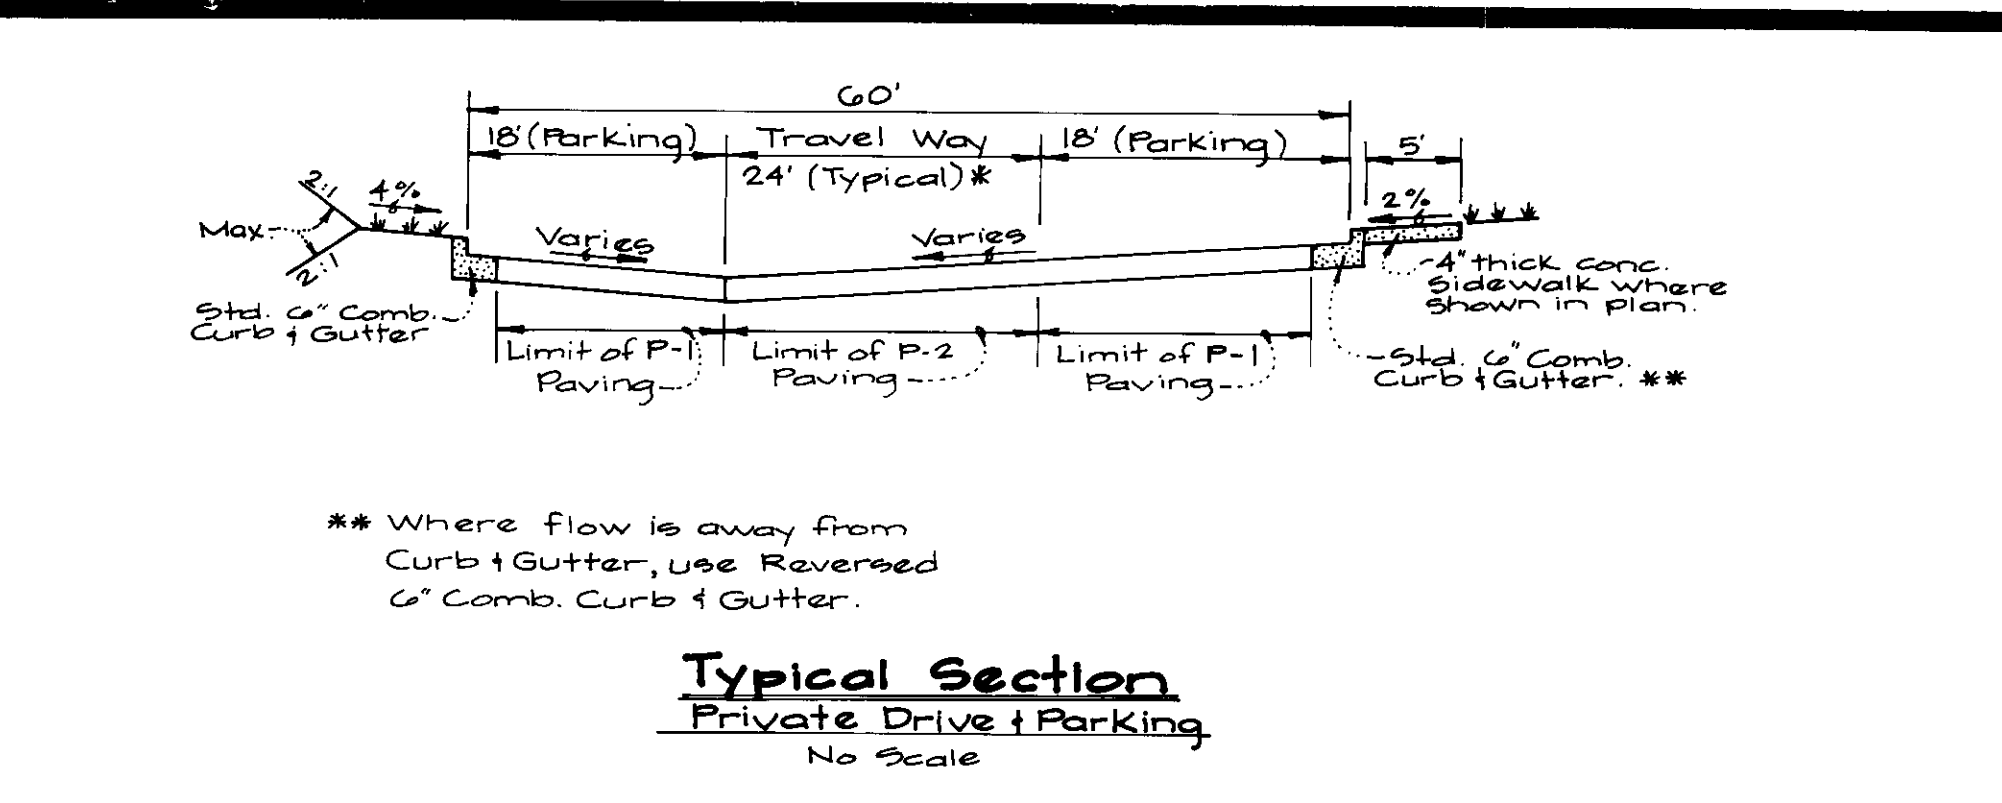 60'
18' (Parking)
Travel Way
18' (Parking)
5'
24' (Typical) *
2:1
4%
2%
Max.
Varies
Varies
2:1
4" thick conc.
Sidewalk where
shown in plan.
Std. 6" Comb.
Curb & Gutter
Limit of P-1
Paving
Limit of P-2
Paving
Limit of P-1
Paving
Std. 6" Comb.
Curb & Gutter. **
** Where flow is away from
Curb & Gutter, use Reversed
6" Comb. Curb & Gutter.
Typical Section
Private Drive & Parking
No Scale